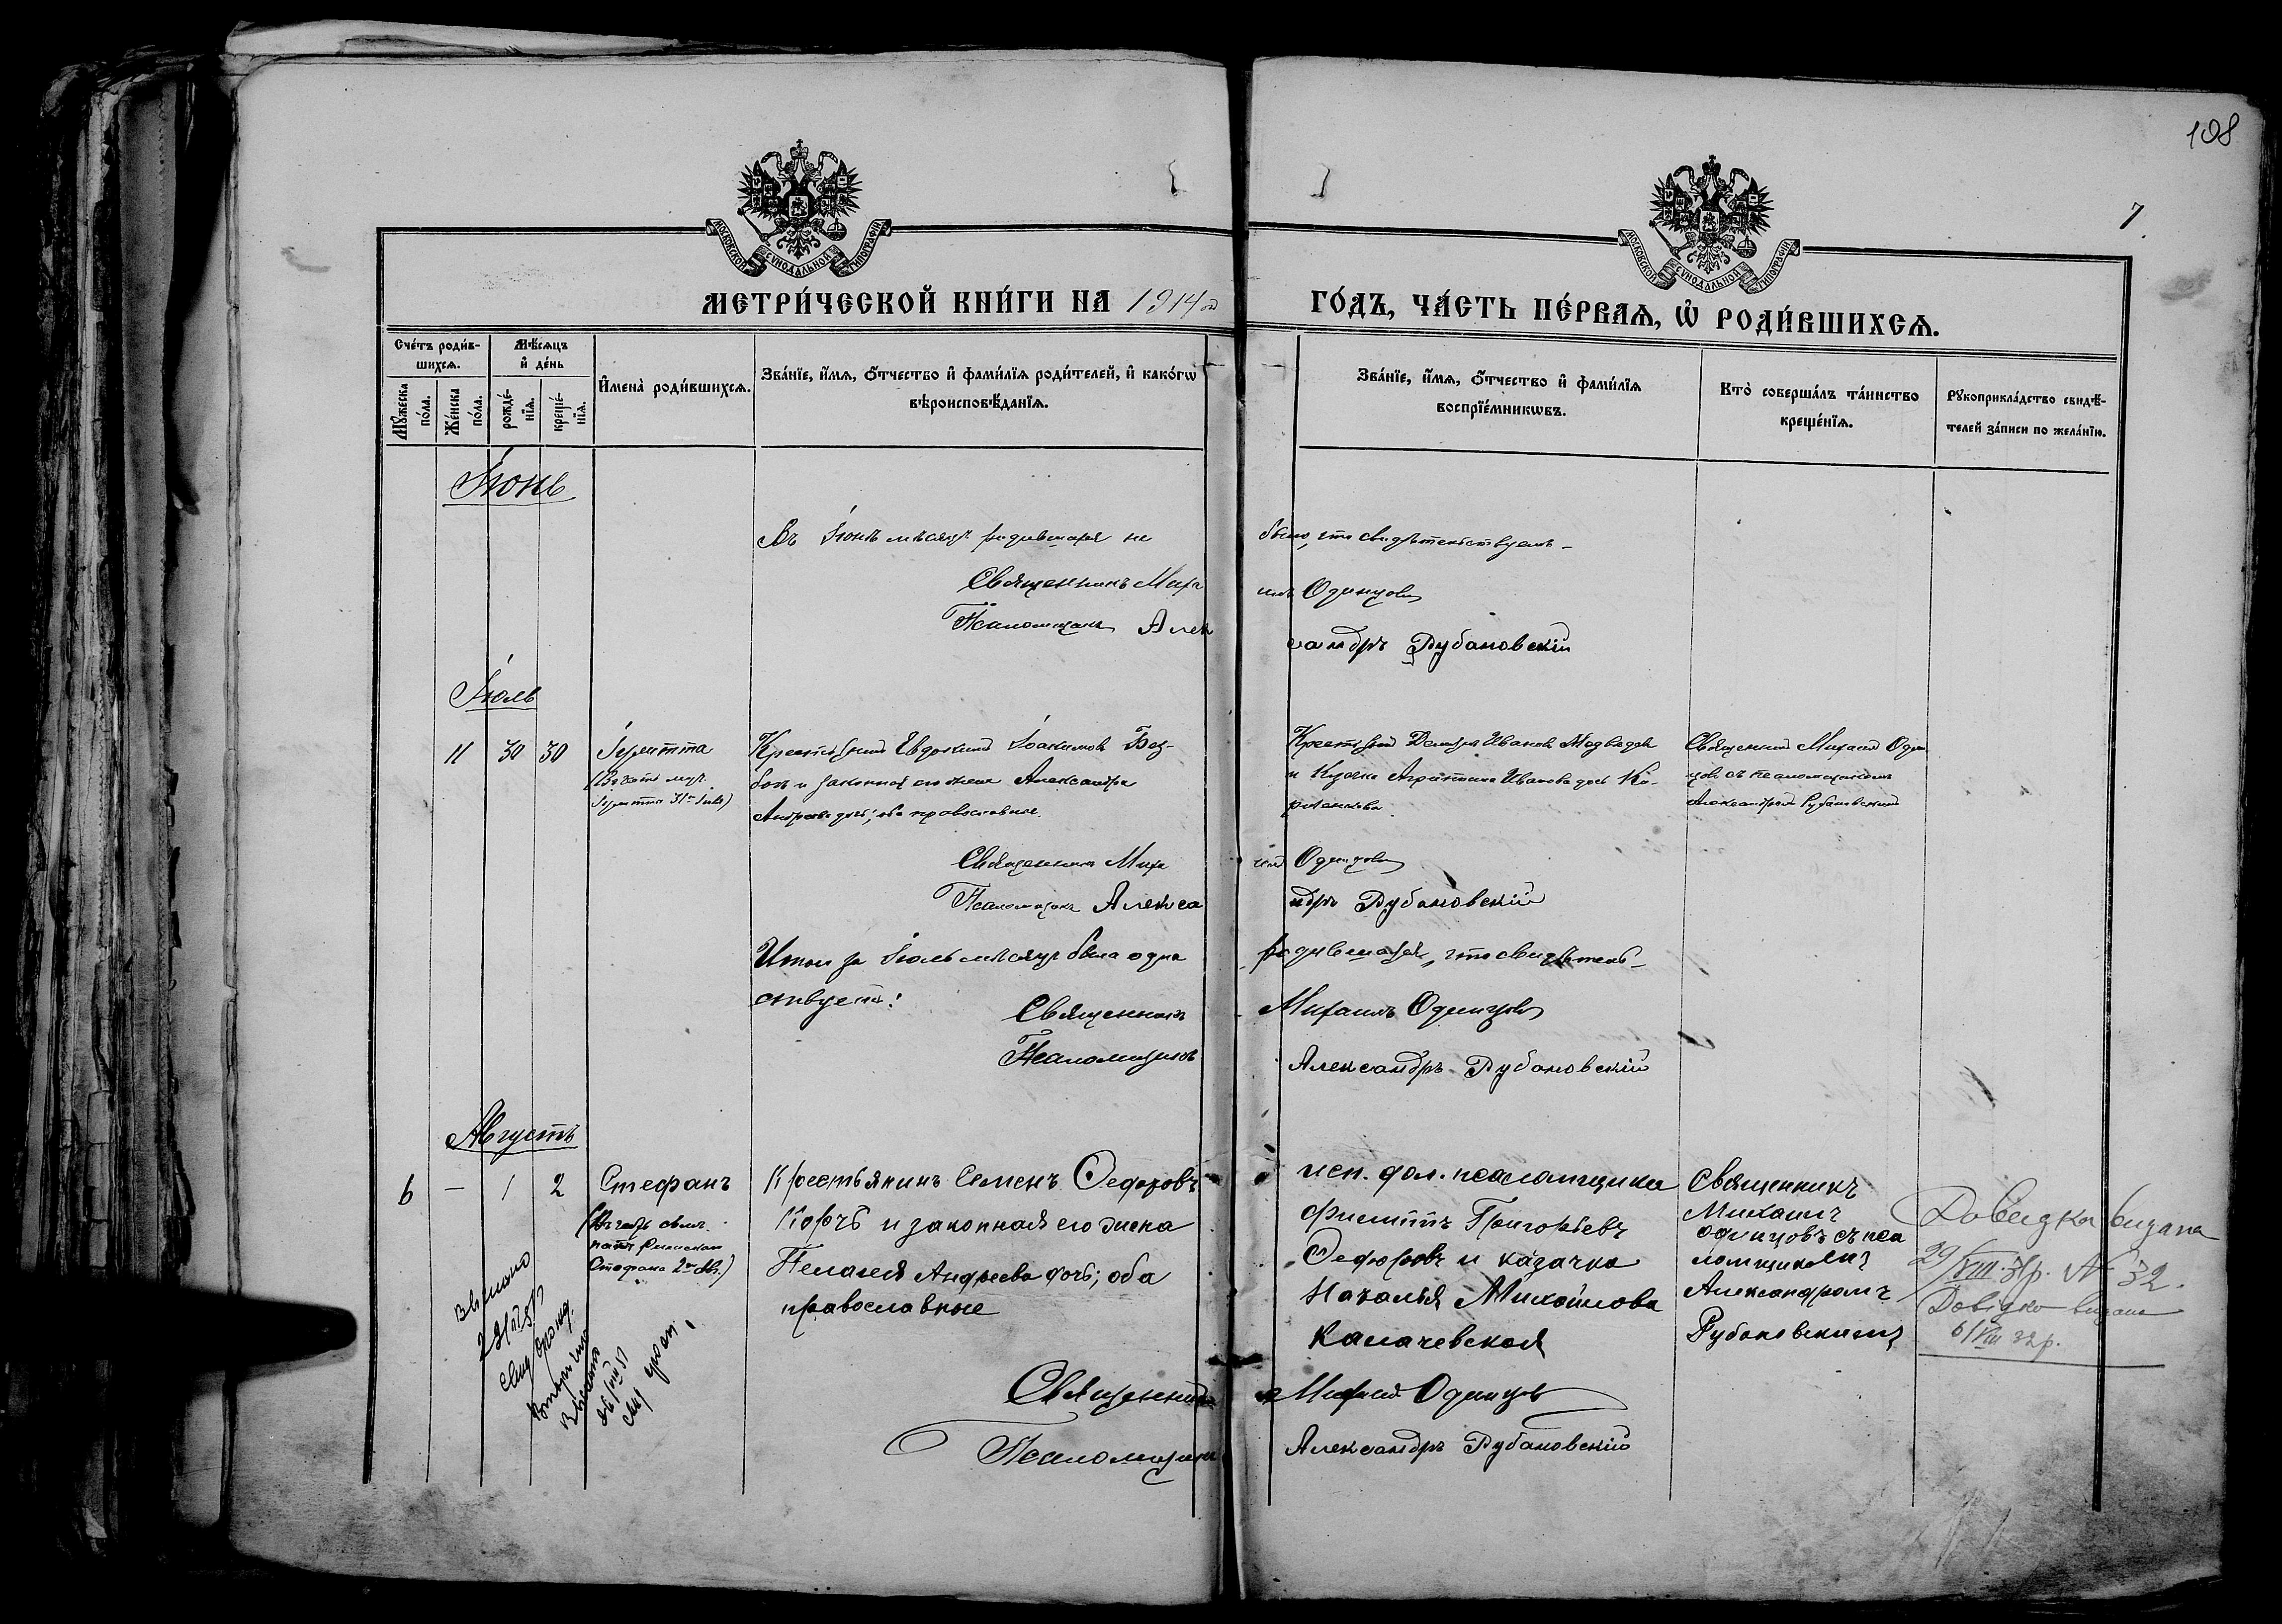 108
7.
МОСКОВСКОЙ СУНОДАЛЬНОЙ ТИПОГРАФІИ
МОСКОВСКОЙ СУНОДАЛЬНОЙ ТИПОГРАФІИ
МЕТРИ́ЧЕСКОЙ КНИ́ГИ НА 1914 ГО́ДЪ, ЧА́СТЬ ПЕ́РВАѦ, Ѡ҆ РОДИ́ВШИХСѦ.
Сче́тъ роди́в-
шихсѧ.
Мꙋ́жеска по́ла.
Же́нска по́ла.
Мѣ́сѧцъ
и҆ де́нь
рожде́-
нїѧ.
креще́-
нїѧ.
И҆мена̀ роди́вшихсѧ.
Зва́нїе, и҆́мѧ, ѻ҆́тчество и҆ фами́лїѧ роди́телей, и҆ како́гѡ
вѣроисповѣ́данїѧ.
Зва́нїе, и҆́мѧ, ѻ҆́тчество и҆ фами́лїѧ
воспрїе́мникѡвъ.
Кто̀ соверша́лъ та́инство
креще́нїѧ.
Рꙋкоприкла́дство свидѣ́-
телей за́писи по жела́нїю.
Іюнь
Въ Іюнѣ мѣсяцѣ родившихся не было, что свидѣтельствуемъ
Священникъ Михаилъ Одинцовъ
Псаломщикъ Александръ Рубановскій
Іюль
11 30 30
Іулитта
Крестьянинъ Евдокимъ Іоакимовъ
и законная его жена Александра
Андреева дочь; оба православные.
Иванова дочь
Священникъ Михаилъ Один
цовъ съ псаломщикомъ
Александромъ Рубановскимъ
Священникъ Михаилъ Одинцовъ
Псаломщикъ Александръ Рубановскій
Итого за Іюль мѣсяцъ была одна родившаяся, что свидѣтель-
ствуемъ:
Священникъ Михаилъ Одинцовъ
Псаломщикъ Александръ Рубановскій
Августъ
6 — 1 2
Стефанъ
Стефана 2го Авг.)
Крестьянинъ Семенъ Ѳедоровъ
Корчъ и законная его жена
Пелагея Андреева дочь; оба
православные
исп. дол. псаломщика
Филиппъ Григорьевъ
Ѳедоровъ и казачка
Наталья Михайлова
Калачевская
Священникъ
Михаилъ
Одинцовъ съ пса
ломщикомъ
Александромъ
Рубановскимъ
Довидка видана
29/VIII 31р. № 32.
Довідка видана
6/VIII 32р.
Священникъ Михаилъ Одинцовъ
Псаломщикъ Александръ Рубановскій